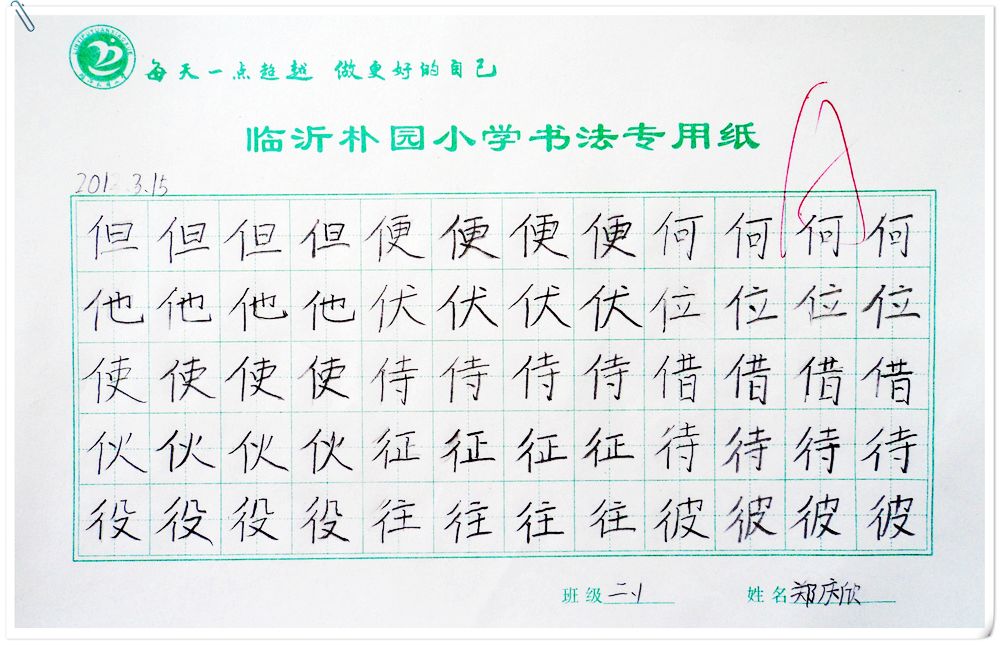 每天一点超越 做更好的自己
临沂朴园小学书法专用纸
2012.3.15
但但但但便便便便何何何何
他他他他伏伏伏伏位位位位
使使使使侍侍侍侍借借借借
伙伙伙伙征征征征待待待待
役役役役往往往往彼彼彼彼
班级 二.1 姓名 郑庆欣